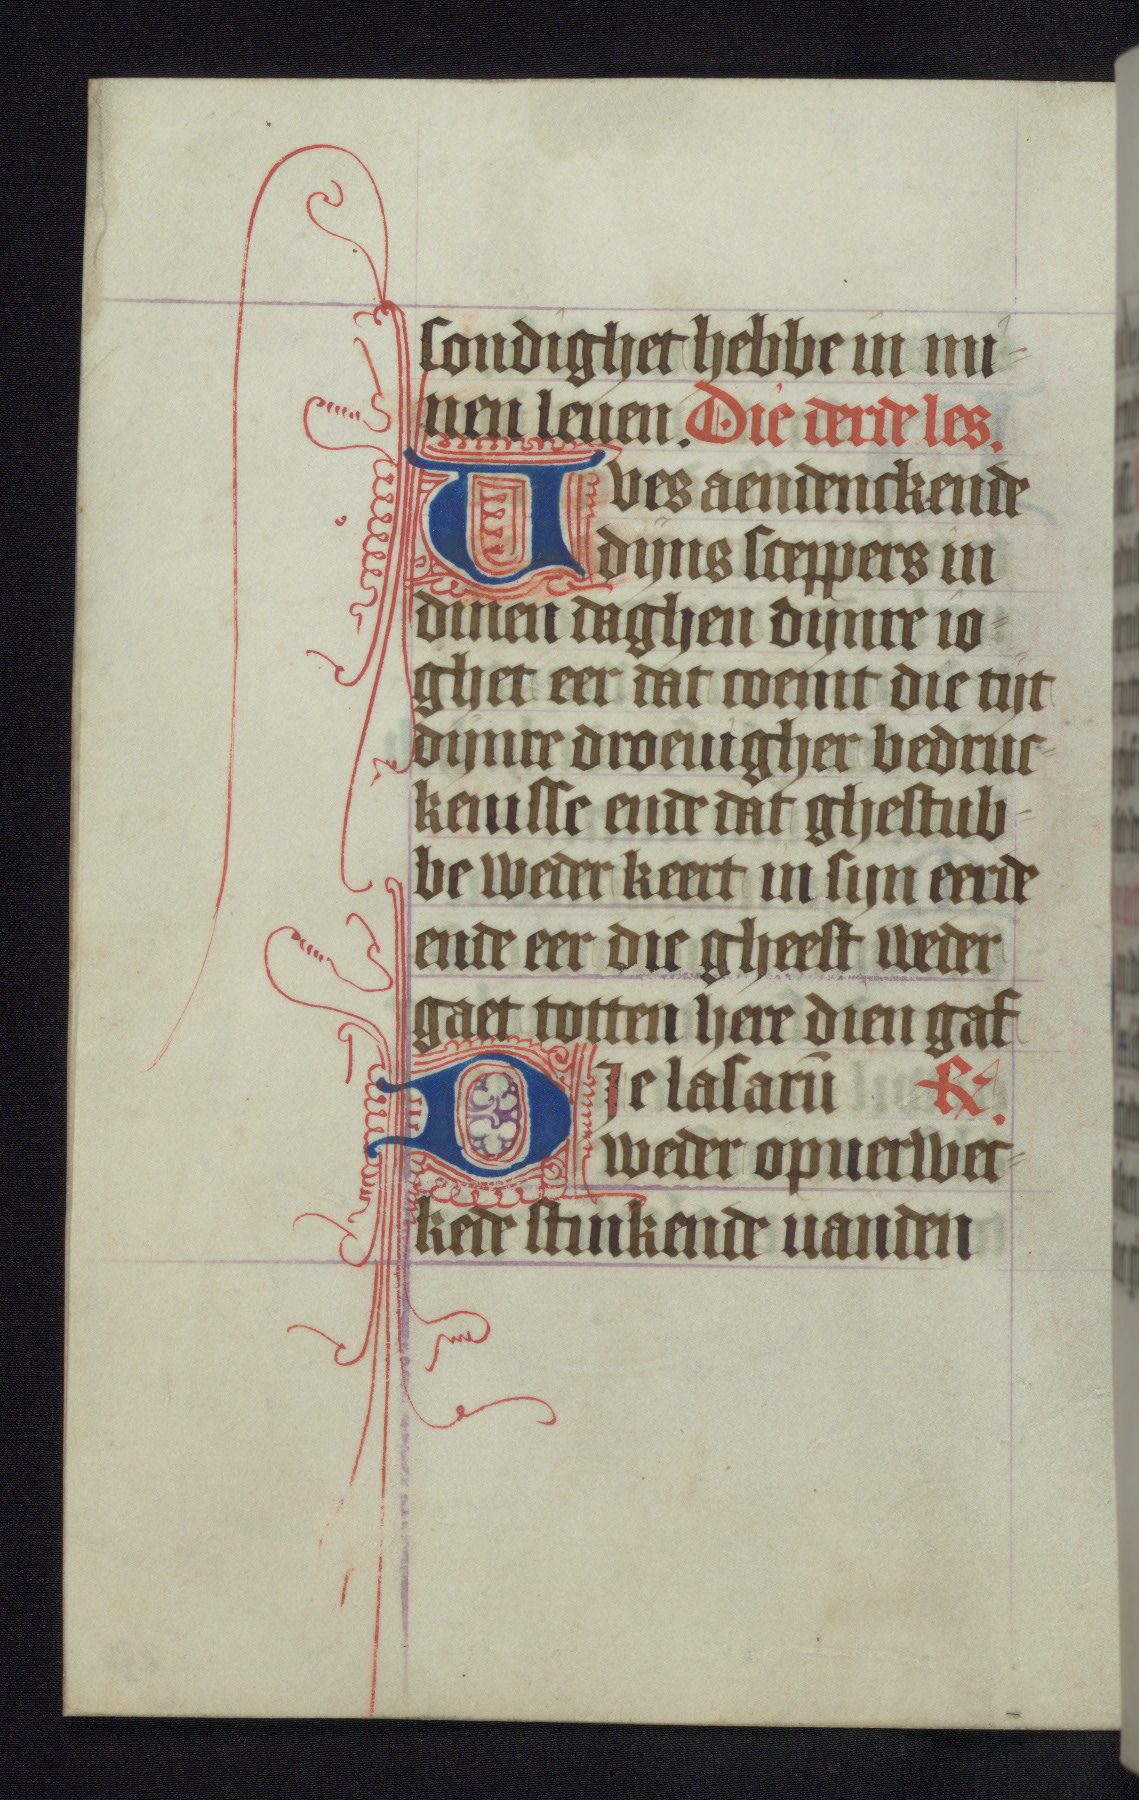 sondighet hebbe in mi-
nen leuen. Die derde les.
Vves aendenckende
dijns sceppers in
dinen daghen dijnre io-
ghet eer dat coemt die tijt
dijnre droeuigher bedruc-
kenisse ende dat ghestub-
be weder keert in sijn eerde
ende eer die gheest weder
gaet totten here dien gaf
DIe lasarū R.
weder opuerwec-
kede stinkende uanden